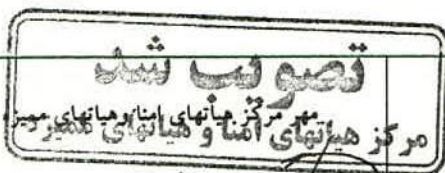 تصویب شد
مهر مرکز هیأتهای امنا وهیاتهای ممیزه
مرکز هیأتهای امنا و هیأتهای ممیزه